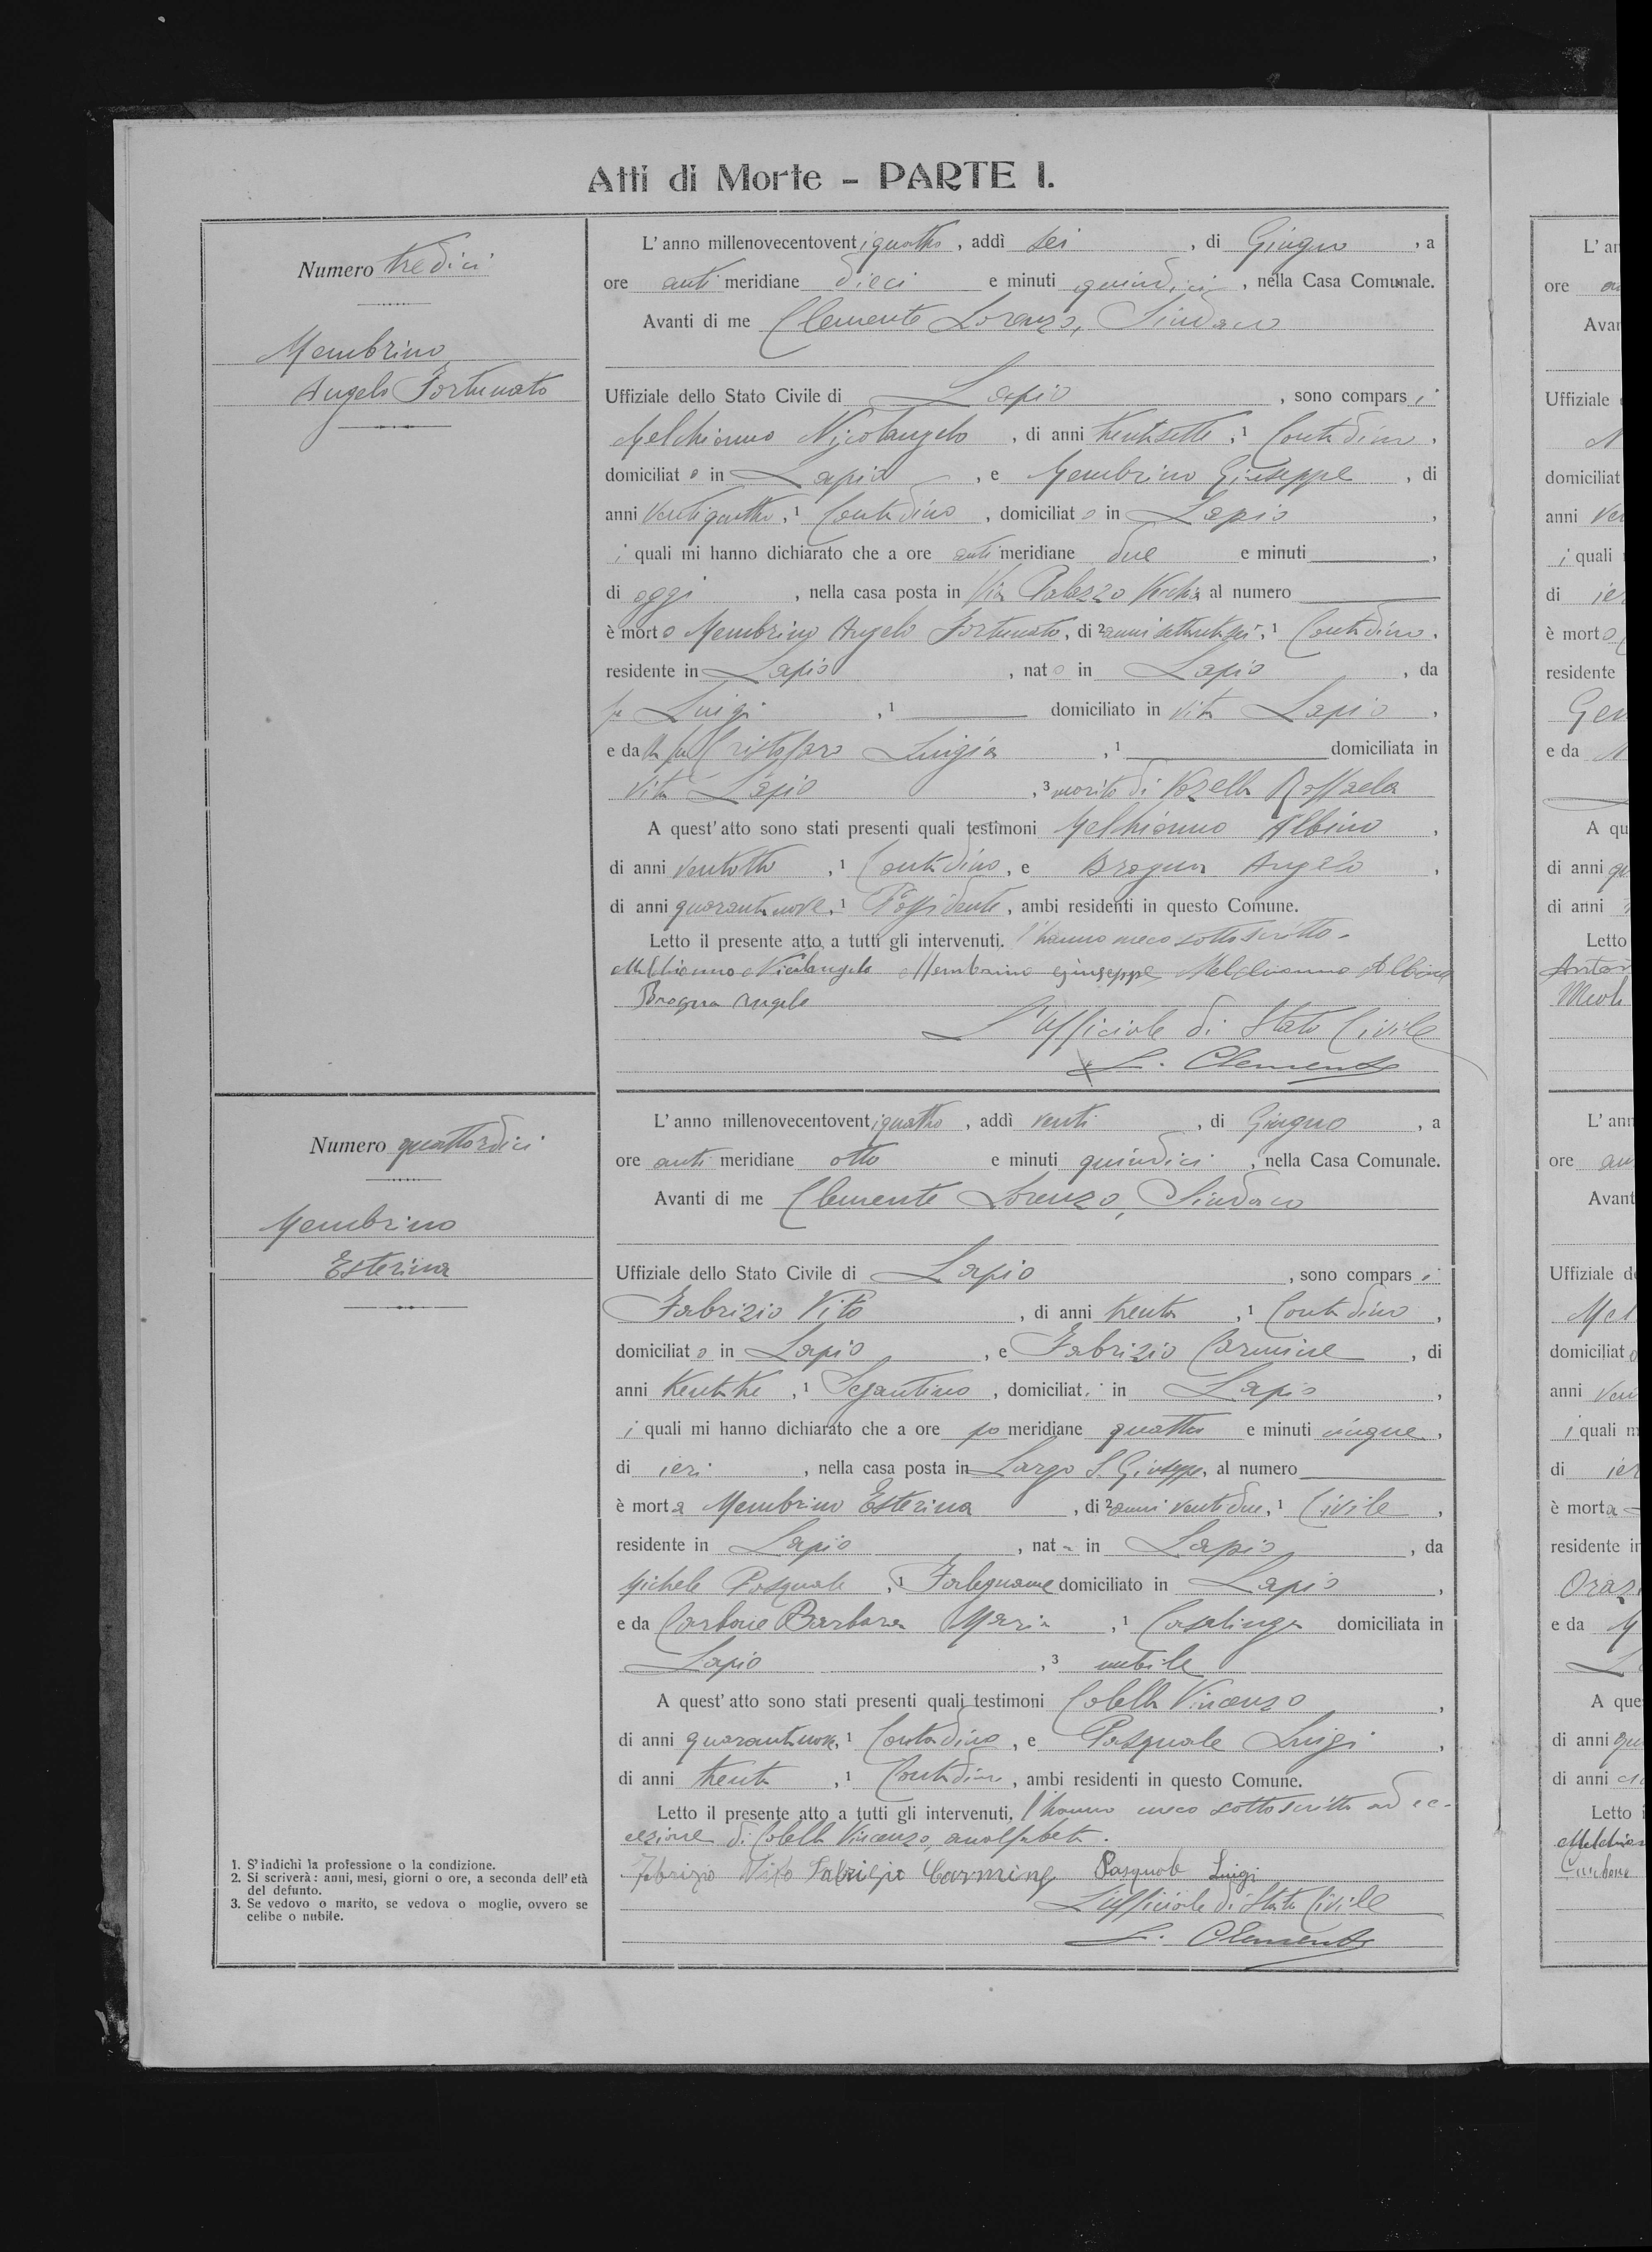 Atti di Morte - PARTE I.
Numero tredici
Membrino
Angelo Fortunato
L'anno millenovecentoventiquattro, addì sei, di Giugno, a
ore antimeridiane dieci e minuti quindici, nella Casa Comunale.
Avanti di me Clemente Lorenzo, Sindaco
Uffiziale dello Stato Civile di Lapio, sono comparsi
Melchionno Nicolangelo, di anni trentasette, 1 Contadino,
domiciliato in Lapio, e Membrino Giuseppe, di
anni ventiquattro, 1 Contadino, domiciliato in Lapio,
i quali mi hanno dichiarato che a ore antimeridiane due e minuti
di oggi, nella casa posta in Via Palazzo Vecchia al numero
è morto Membrino Angelo Fortunato, di 2 anni settantasei, 1 Contadino,
residente in Lapio, nato in Lapio, da
fu Luigi, 1 domiciliato in vita Lapio,
e da la fu Cristofaro Luigia, 1 domiciliata in
vita Lapio, 3 marito di Vozella Raffaela
A quest'atto sono stati presenti quali testimoni Melchionno Albino,
di anni ventotto, 1 Contadino, e Brogna Angelo,
di anni quarantanove, 1 Possidente, ambi residenti in questo Comune.
Letto il presente atto, a tutti gli intervenuti. l'hanno meco sottoscritto.
Melchionno Nicolangelo Membrino Giuseppe Melchionno Albino
Brogna Angelo
L'Ufficiale di Stato Civile
L. Clemente
Numero quattordici
Membrino
Esterina
L'anno millenovecentoventiquattro, addì venti, di Giugno, a
ore antimeridiane otto e minuti quindici, nella Casa Comunale.
Avanti di me Clemente Lorenzo, Sindaco
Uffiziale dello Stato Civile di Lapio, sono comparsi
Fabrizio Vito, di anni trenta, 1 Contadino,
domiciliato in Lapio, e Fabrizio Carmine, di
anni trentatre, 1 Segantino, domiciliati in Lapio,
i quali mi hanno dichiarato che a ore pomeridiane quattro e minuti cinque,
di ieri, nella casa posta in Largo S. Giuseppe, al numero
è morta Membrino Esterina, di 2 anni ventidue, 1 Civile,
residente in Lapio, nata in Lapio, da
Michele Pasquale, 1 Falegname domiciliato in Lapio,
e da Carbone Barbara Maria, 1 Casalinga domiciliata in
Lapio, 3 nubile
A quest'atto sono stati presenti quali testimoni Colella Vincenzo,
di anni quarantanove, 1 Contadino, e Pasquale Luigi,
di anni trenta, 1 Contadino, ambi residenti in questo Comune.
Letto il presente atto a tutti gli intervenuti, l'hanno meco sottoscritto ad ec-
cezione di Colella Vincenzo, analfabeta.
Fabrizio Vito Fabrizio Carmine Pasquale Luigi
L'Ufficiale di Stato Civile
L. Clemente
1. S'indichi la professione o la condizione.
2. Si scriverà: anni, mesi, giorni o ore, a seconda dell'età
del defunto.
3. Se vedovo o marito, se vedova o moglie, ovvero se
celibe o nubile.